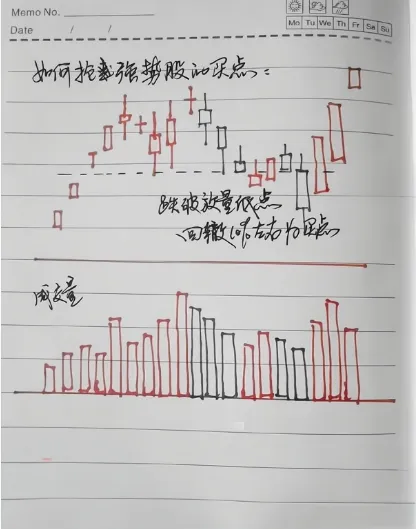 Memo No.
Mo Tu We Th Fr Sa Su
Date / /
如何抢到强势股的买点:
跌破放量低点
回撤10%左右为买点
成交量